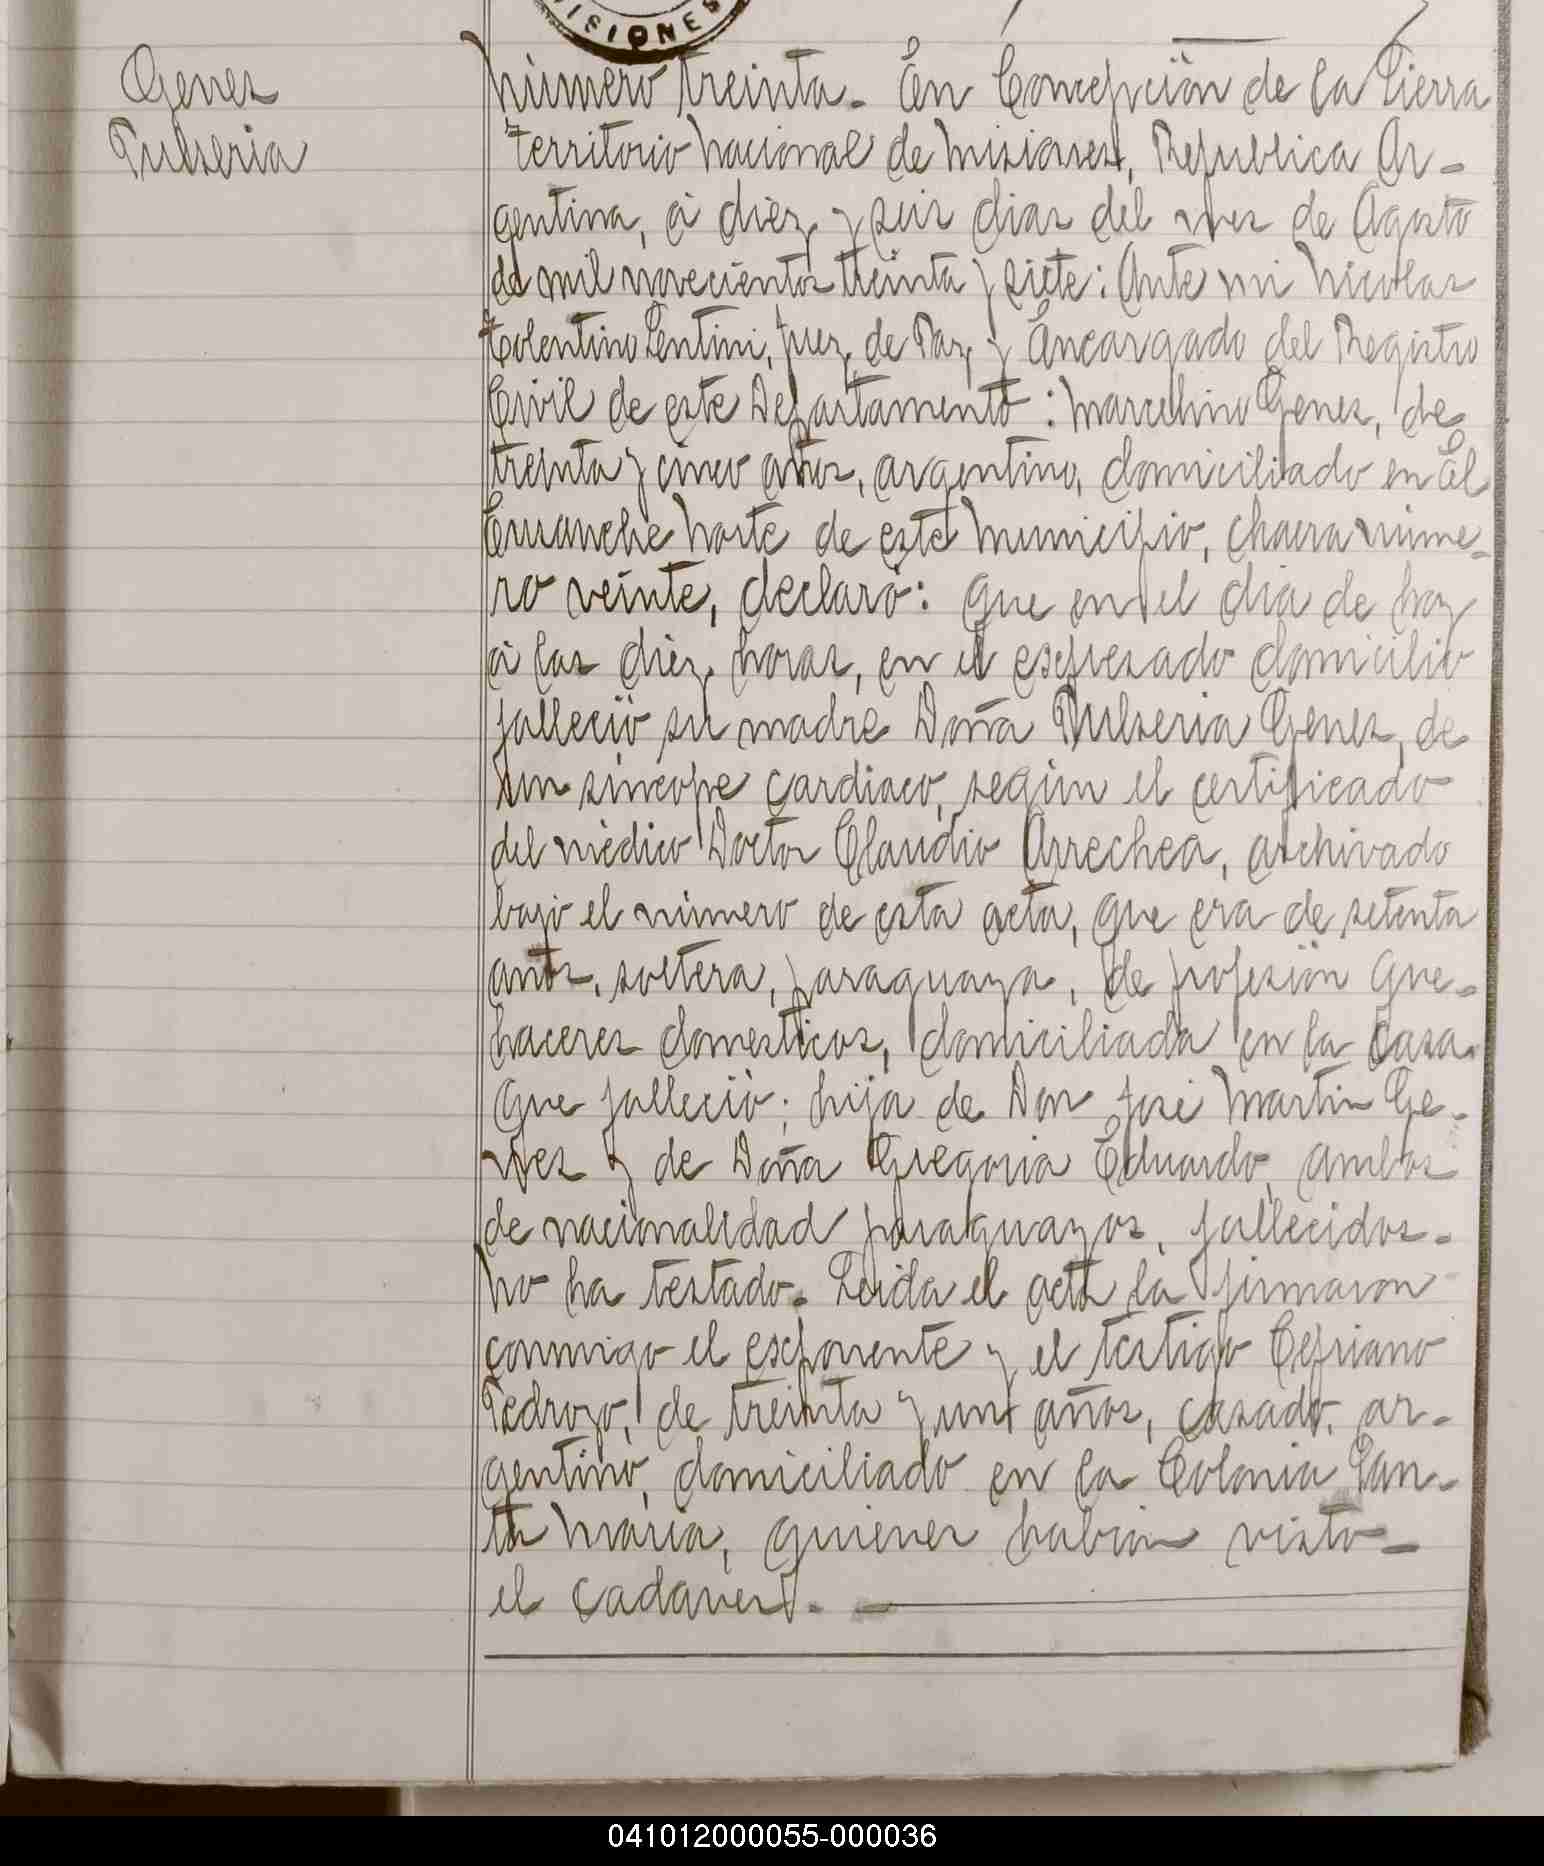 MISIONES
Genes
Pulseria
Número treinta. En Concepción de la Sierra
territorio Nacional de Misiones, Republica Ar-
gentina, á diez y seis dias del mes de Agosto
de mil novecientos treinta y siete: Ante mi Nicolas
Tolentino Lentini, Juez de Paz y Encargado del Registro
Civil de este Departamento: Marcelino Genes, de
treinta y cinco años, argentino, domiciliado en El
Ensanche Norte de este Municipio, chacra núme-
ro veinte, declaró: Que en el dia de hoy
á las diez horas, en el expresado domicilio
falleció su madre Doña Pulseria Genes, de
un síncope cardiaco, según el certificado
del médico Doctor Claudio Arrechea, archivado
bajo el número de esta acta, que era de setenta
años, soltera, paraguaya, de profesión que-
haceres domesticos, domiciliada en la casa
que falleció; hija de Don José Martin Ge-
nes y de Doña Gregoria Eduardo, ambos
de nacionalidad paraguayos, fallecidos.
No ha testado. Leida el acta la firmaron
conmigo el exponente y el testigo Cepriano
Pedrozo, de treinta y un años, casado, ar-
gentino, domiciliado en la Colonia San-
ta María, quienes habian visto
el cadaver.
041012000055-000036